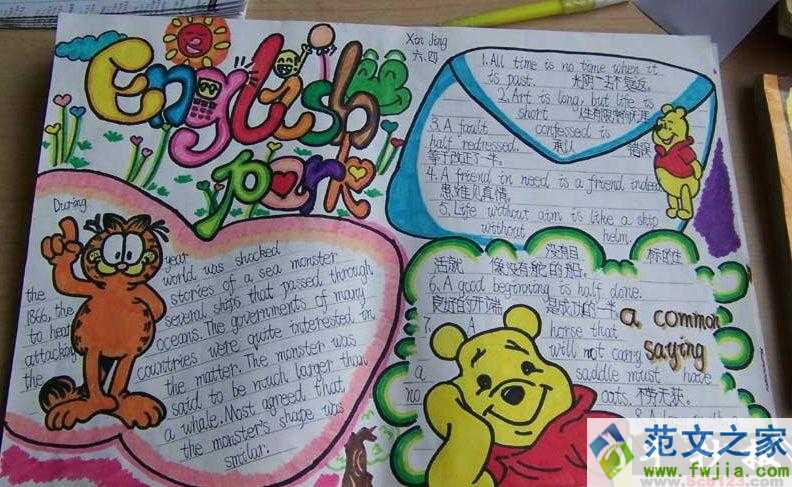 English
park
Xin Jing
六.四
1. All time is no time when it
is past. 光阴一去不复返。
2. Art is long, but life is
short 人生有限学问无涯
3. A fault confessed is
half redressed. 承认 错误
等于改正了一半。
4. A friend in need is a friend indeed
患难见真情。
5. Life without aim is like a ship
without helm.
没有目 标的生
活就 像没有舵的船。
6. A good beginning is half done.
良好的开端 是成功的一半
7. A horse that
will not carry
a saddle must have
no oats. 不劳无获。
a common
saying
During
the year
1866, the world was shocked
to hear stories of a sea monster
attacking several ships that passed through
the oceans. The governments of many
countries were quite interested in
the matter. The monster was
said to be much larger than
a whale. Most agreed that
the monster's shape was
similar.
范文之家
www.fwjia.com